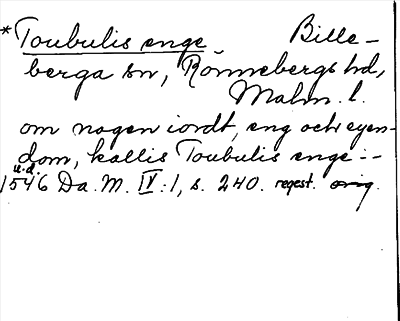 *Toubulis enge Bille-
berga sn, Rönnebergs hd,
Malm. l.
om nogen iordt, eng och eyen-
dom, kallis Toubulis enge :-
u.d.
1546 Da. M. IV:1, s. 240. regest. orig.